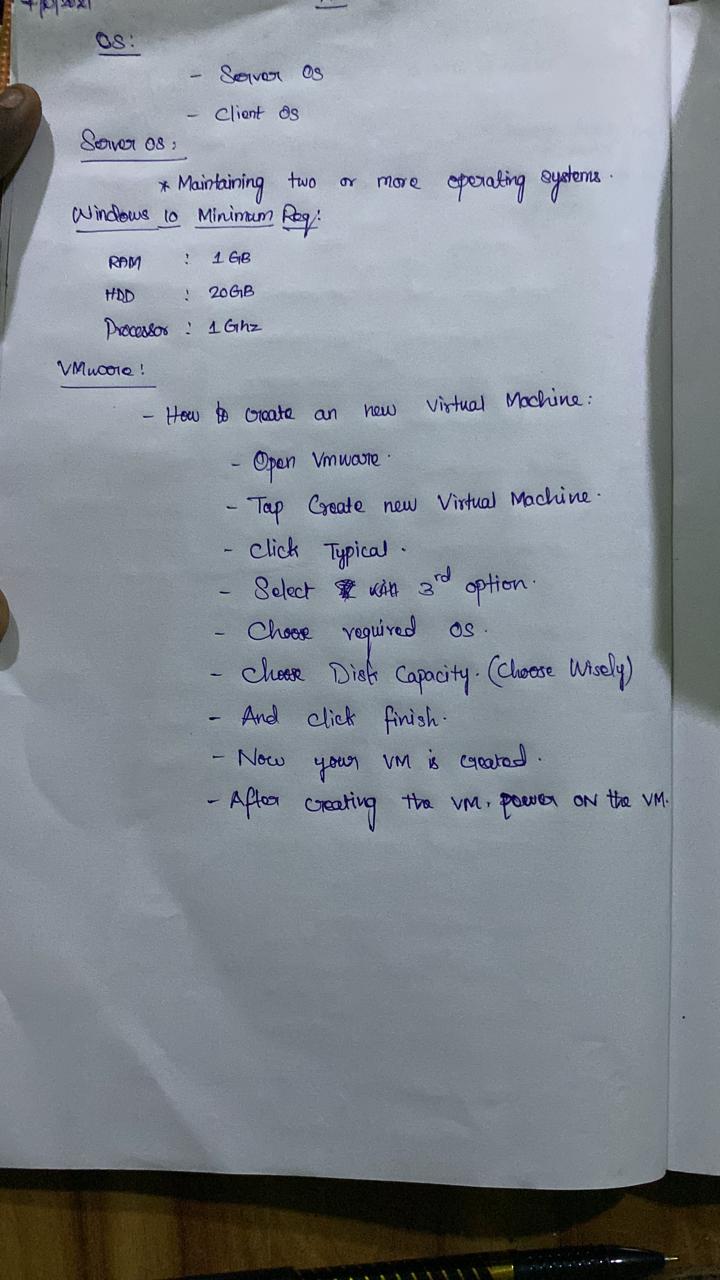 OS:
- Server OS
- Client OS
Server OS:
* Maintaining two or more operating systems.
Windows 10 Minimum Req:
RAM : 1 GB
HDD : 20GB
Processor : 1 Ghz
VMware:
- How to create an new Virtual Machine:
- Open Vmware.
- Tap Create new Virtual Machine.
- Click Typical.
- Select 3rd option.
- Choose required OS.
- Choose Disk Capacity. (Choose Wisely)
- And click finish.
- Now your VM is created.
- After creating the VM, power ON the VM.